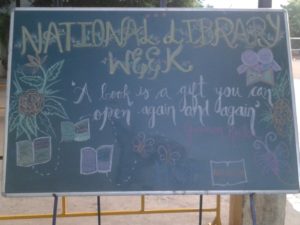 NATIONAL LIBRARY
WEEK
"A book is a gift you can
open again and again"